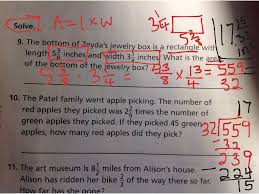 Solve. A = l × w
9. The bottom of Zeyda's jewelry box is a rectangle with
length 5 3/8 inches and width 3 1/4 inches. What is the area
of the bottom of the jewelry box?
3 1/4
5 3/8
5 3/8 · 3 1/4 = 43/8 × 13/4 = 559/32
10. The Patel family went apple picking. The number of
red apples they picked was
times the number of
green apples they picked. If they picked 45 green
apples, how many red apples did they pick?
17
32)559
-32
239
-224
15
11. The art museum is 8 miles from Alison's house.
Alison has ridden her bike of the way there so far.
How far has she gone?